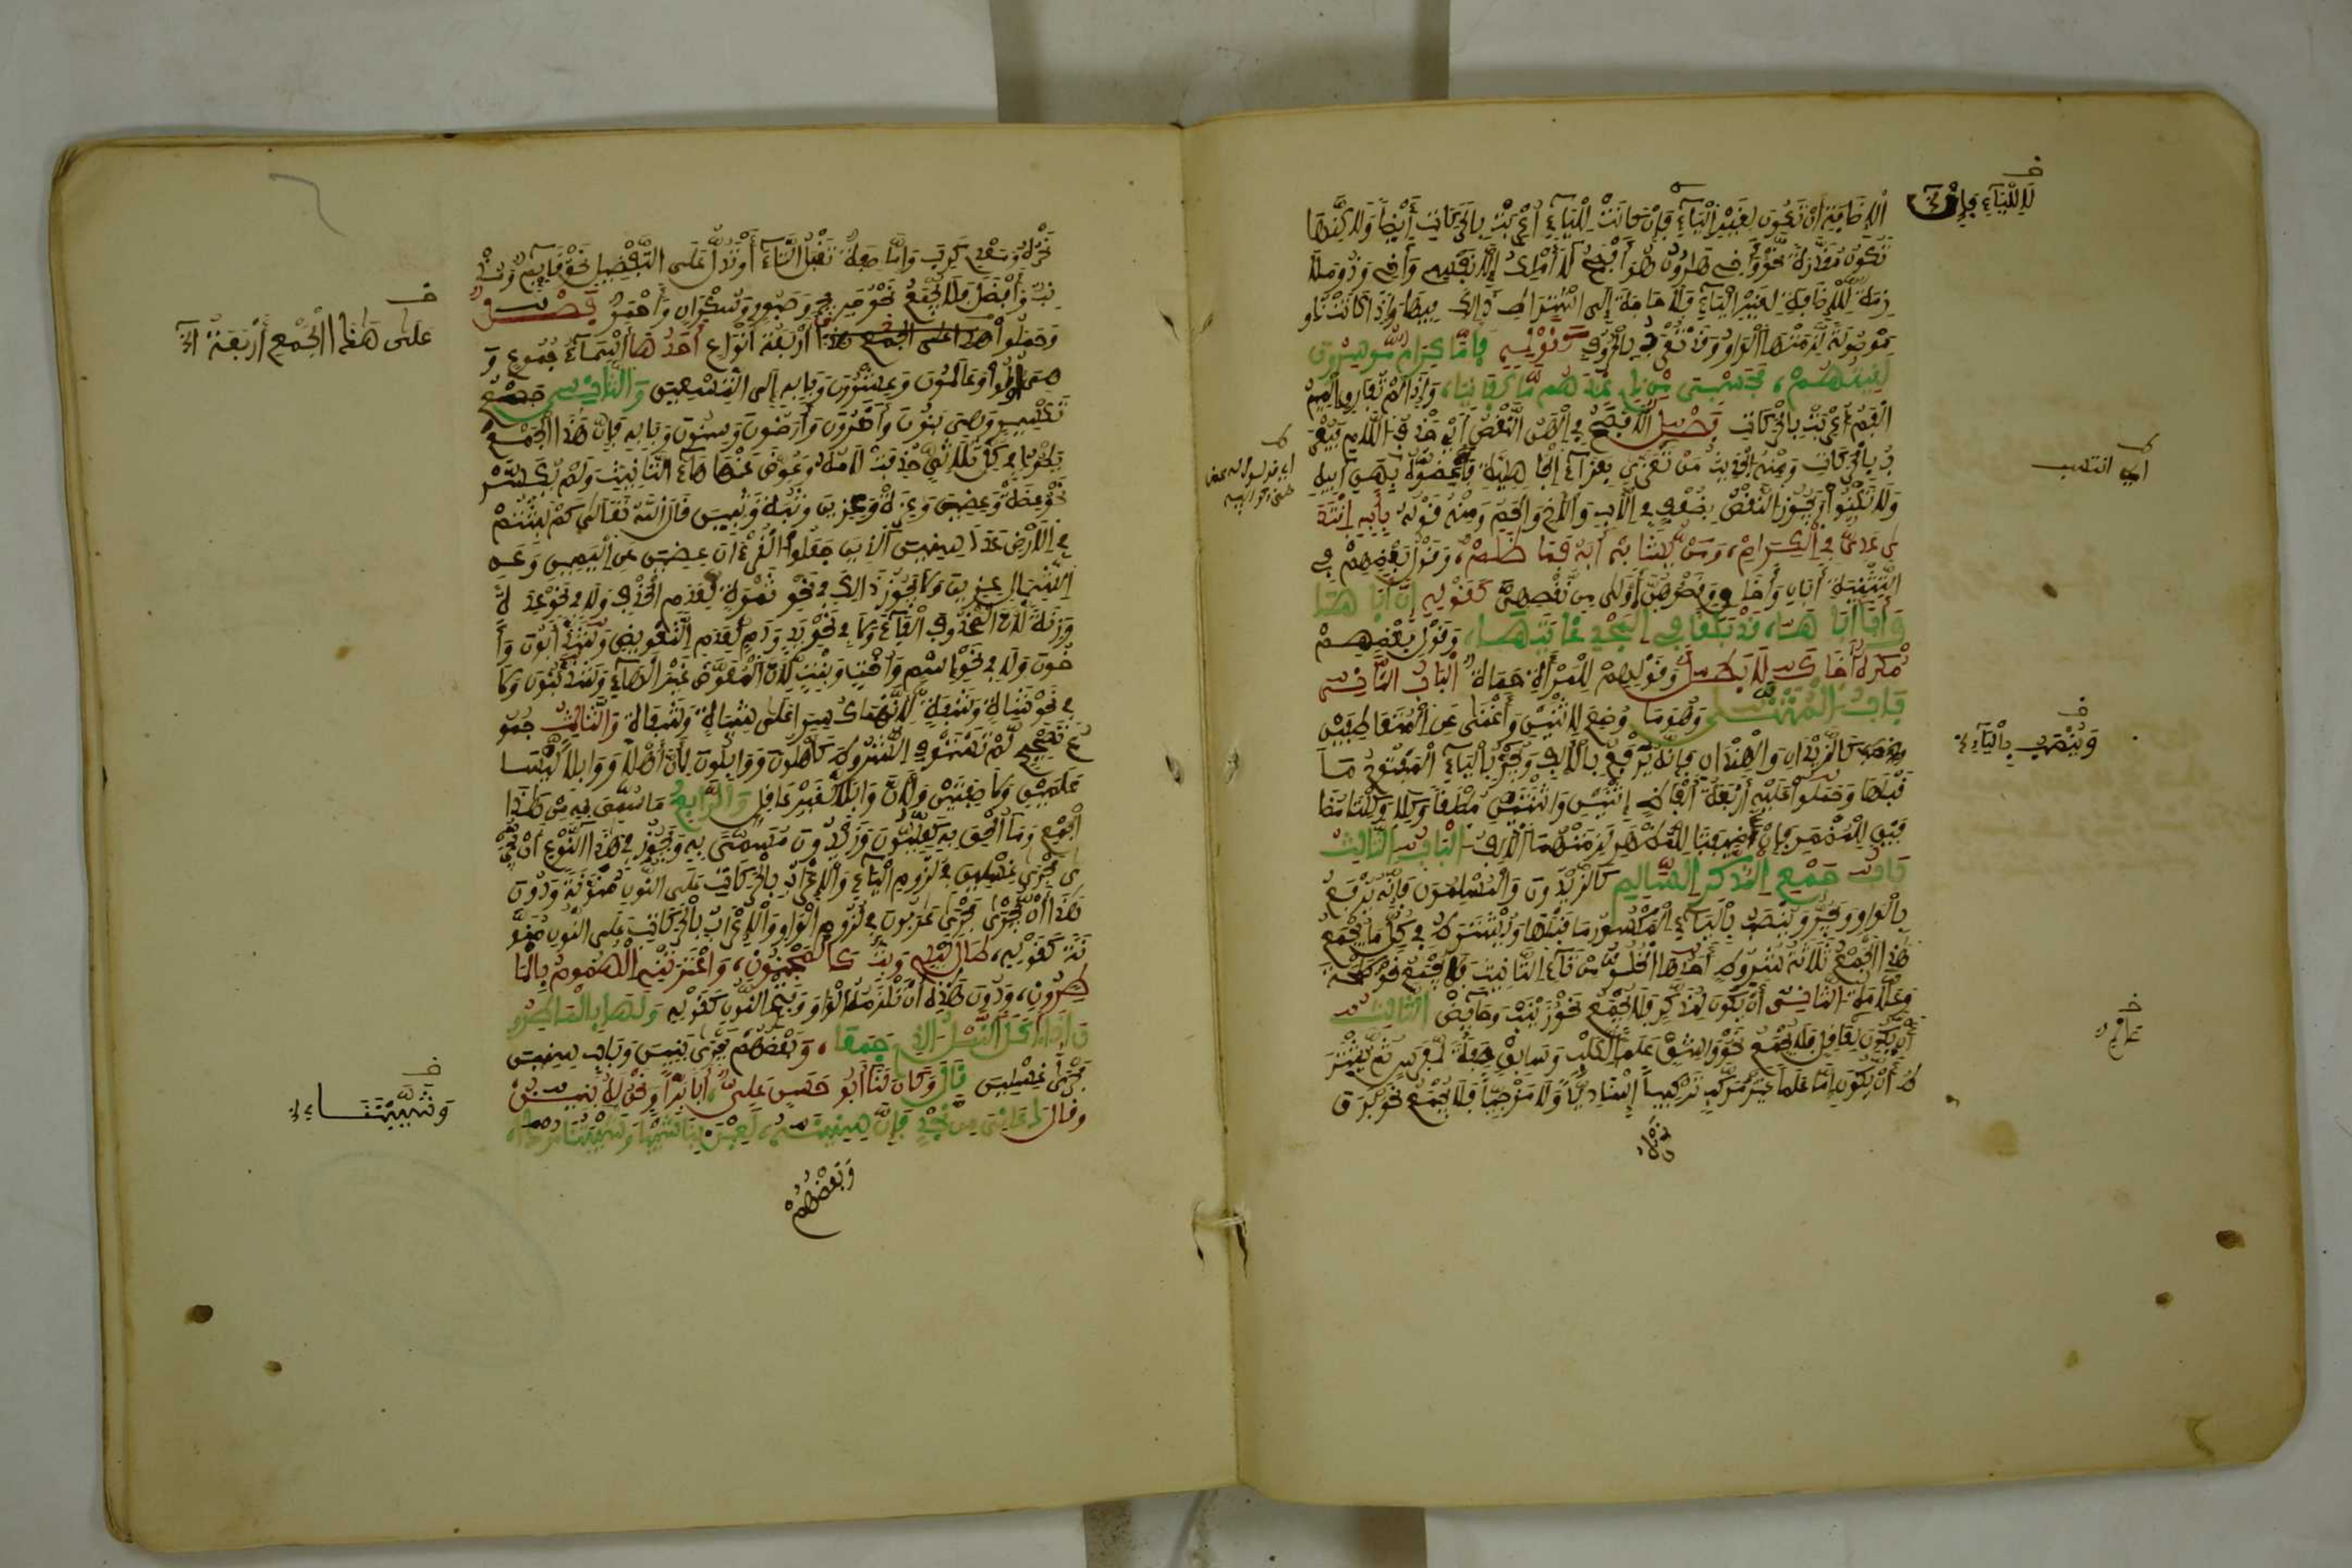 لَا لِلْيَآءِ فَإِن
الاضَافَةِ أن تَكُون لغَيْرِ الْيَآءِ فَإِن كانَتْ لِلْيَآءِ أُعْرِبَتْ بِالحَركَاتِ أَيْضاً وَلَكِنَّهَا
تَكُونُ مُقَدَّرَةً نَحْوُ وَأَخِي هَارُونُ هُوَ أَفْصَحُ لَا أَمْلِكُ إِلَّا نَفْسِي وَأَخِي وَذُو مُلَا
زِمَةٌ لِلْإِضَافَةِ لغَيْرِ الْيَآءِ فَلَا حَاجَةَ إِلَى اشْتِرَاطِ ذَالِكَ فِيهَا وَإِذَا كَانَتْ ذُو
مَوْصُولَةً لَزِمَتْهَا الْوَاوُ وَقَدْ تُعْرَبُ بِالْحُرُوفِ كَقَوْلِهِ فَإِمَّا كِرَامٌ مُوسِرُونَ
لَقِيتُهُمْ، فَحَسْبِي مِنْ ذِي عِنْدَهُم مَّا كَفَانِيَا، وَإِذَا لَمْ تُفَارِقِ الْمِيمُ
الْفَمَ أُعْرِبَتْ بِالْحَرَكَاتِ فَصْل الأفْصَحُ فِي الْهَنِ النَّقْصُ أَيْ حَذْفُ اللَّامِ فَيُعْرَ
بُ بِالْحَرَكَاتِ وَمِنْهُ الْحَدِيثُ مَنْ تَعَزَّى بِعَزَآءِ الْجَاهِلِيَّةِ فَأَعِضُّوهُ بِهَنِ أَبِيهِ
وَلَا تَكْنُوا وَيَجُوزُ النَّقْصُ بِضُعْفٍ فِي الْأَبِ وَالْأَخِ وَالْحَمِ وَمِنْهُ قَوْلُهُ بِأَبِهِ اقْتَدَ
ى عَدِىٌّ فِي الْكَرَمْ، وَمَنْ يُشَابِهْ أَبَهُ فَمَا ظَلَمْ، وَقَوْلُ بَعْضِهِمْ فِي
التَّثْنِيَةِ أَبَانِ وَأَخَانِ وَقَصْرُهُنَّ أَوْلَى مِن نَّقْصِهِنَّ كَقَوْلِهِ إِنَّ أَبَاهَا
وَأَبَا أَبَاهَا، قَدْ بَلَغَا فِي الْمَجْدِ غَايَتَاهَا، وَقَوْل بَعْضِهِمْ
مُكْرَهٌ أَخَاكَ لَا بَطَل وَقَوْلِهِمْ لِلْمَرْأَةِ حَمَاةٌ الْبَابُ الثَّانِي
بَابُ الْمُثَنَّى وَهُوَ مَا وُضِعَ لِاثْنَيْنِ وَأَغْنَى عَنِ الْمُتَعَاطِفَيْنِ
كَالزَّيْدَانِ وَالْهِنْدَانِ فَإِنَّهُ يُرْفَعُ بِالْأَلِفِ وَيُجَرُّ بِالْيَآءِ الْمَفْتُوحِ مَا
قَبْلَهَا وَحَمَلُوا عَلَيْهِ أَرْبَعَةَ أَلْفَاظٍ اثْنَيْنِ وَاثْنَتَيْنِ مُطْلَقاً وَكِلَا وَكِلْتَا مُضَا
فَيْنِ لِلْمُضْمَرِ فَإِنْ أُضِيفَتَا لِلظَّاهِرِ لَزِمَتْهُمَا الْأَلِفُ الْبَابُ الثَّالِثُ
بَابُ جَمْعِ الْمُذَكَّرِ السَّالِمِ كَالزَّيْدُونَ وَالْمُسْلِمُونَ فَإِنَّهُ يُرْفَعُ
بِالْوَاوِ وَيُجَرُّ وَيُنْصَبُ بِالْيَآءِ الْمَكْسُورِ مَا قَبْلَهَا وَيُشْتَرَطُ فِي كُلِّ مَا يُجْمَعُ
هَذَا الْجَمْعَ ثَلَاثَةُ شُرُوطٍ أَحَدُهَا الْخُلُوُّ مِنْ تَآءِ التَّأْنِيثِ فَلَا يُجْمَعُ نَحْوُ طَلْحَةَ
وَعَلَّامَةٍ الثَّانِي أَنْ يَكُونَ لِمُذَكَّرٍ فَلَا يُجْمَعُ نَحْوُ زَيْنَبَ وَحَآئِضٍ الثَّالِثُ
أَنْ يَكُونَ لِعَاقِلٍ فَلَا يُجْمَعُ نَحْوُ وَاشِقٍ عَلَماً لِكَلْبٍ وَسَابِقٍ صِفَةً لِفَرَسٍ ثُمَّ يُشْتَرَ
طُ أَنْ يَكُونَ إِمَّا عَلَماً غَيْرَ مُرَكَّبٍ تَرْكِيباً إِسْنَادِيّاً وَلَا مَزْجِيّاً فَلَا يُجْمَعُ نَحْوُ بَرَقَ
نَحْرُهُ
أي انتسب
وَيُنْصَبُ بِالْيَآءِ
عَلَمٍ
نَحْرُهُ وَمَعْدِي كَرِبَ وَإِمَّا صِفَةً تَقْبَلُ التَّآءَ أَوْ تَدُلُّ عَلَى التَّفْضِيلِ نَحْوُ قَايِمٍ وَمُذْ
نِبٍ وَأَفْضَلَ فَلَا يُجْمَعُ نَحْوُ جَرِيحٍ وَصَبُورٍ وَسَكْرَانَ وَأَحْمَرَ فَصْل
وَحَمَلُوا هَذَا عَلَى الْجَمْعِ أَرْبَعَة أَنْوَاعٍ أَحَدُهَا أَسْمَآءُ جُمُوعٍ وَ
هِيَ أُولُوا وَعَالَمُونَ وَعِشْرُونَ وَبَابِهِ إِلَى التِّسْعِينَ وَالثَّانِي جُمُوعُ
تَكْسِيرٍ وَهِيَ بَنُونَ وَأَحَرُّونَ وَأَرَضُونَ وَسِنُونَ وَبَابِهِ فَإِنَّ هَذَا الْجَمْعَ
يَطَّرِدُ فِي كُلِّ ثُلَاثِيٍّ حُذِفَتْ لَامُهُ وَعُوِّضَ عَنْهَا هَآءُ التَّأْنِيثِ وَلَمْ يُكَسَّرْ
نَحْوُ عِضَةٍ وَعِضِينَ وَعِزَةٍ وَعِزِينَ وَثُبَةٍ وَثُبِينَ قَالَ اللَّهُ تَعَالَى كَمْ لَبِثْتُمْ
فِي الْأَرْضِ عَدَدَ سِنِينَ الَّذِينَ جَعَلُوا الْقُرْءَانَ عِضِينَ عَنِ الْيَمِينِ وَعَنِ
الشِّمَالِ عِزِينَ وَلَا يَجُوزُ ذَالِكَ فِي نَحْوِ تَمْرَةٍ لِعَدَمِ الْحَذْفِ وَلَا فِي نَحْوِ عِدَةٍ
وَزِنَةٍ لِأَنَّ الْمَحْذُوفَ الْفَآءُ وَلَا فِي نَحْوِ يَدٍ وَدَمٍ لِعَدَمِ التَّعْوِيضِ وَشَذَّ أَبُونَ وَأَ
خُونَ وَلَا فِي نَحْوِ اسْمٍ وَأُخْتٍ وَبِنْتٍ لِأَنَّ الْمُعَوَّضَ غَيْرُ الْهَآءِ وَشَذَّ بَنُونَ وَلَا
فِي نَحْوِ شَاةٍ وَشَفَةٍ لِأَنَّهُمَا كُسِّرَا عَلَى شِيَاهٍ وَشِفَاهٍ وَالثَّالِثُ جُمُو
عُ تَصْحِيحٍ لَمْ تَسْتَوْفِ الشُّرُوطَ كَأَهْلُونَ وَوَابِلُونَ لِأَنَّ أَهْلًا وَوَابِلًا لَيْسَا
عَلَمَيْنِ وَلَا صِفَتَيْنِ وَلِأَنَّ وَابِلًا لِغَيْرِ عَاقِلٍ وَالرَّابِعُ مَا سُمِّيَ بِهِ مِنْ هَذَا
الْجَمْعِ وَمَا أُلْحِقَ بِهِ كَعِلِّيُّونَ وَزَيْدُونَ مُسَمًّى بِهِ وَيَجُوزُ فِي هَذَا النَّوْعِ أَنْ يُجْرَ
ى مَجْرَى غِسْلِينَ فِي لُزُومِ الْيَآءِ وَالْإِعْرَابِ بِالْحَرَكَاتِ عَلَى النُّونِ مُنَوَّنَةً وَدُونَ
هَذَا أَنْ يُجْرَى مَجْرَى عَرَبُونَ فِي لُزُومِ الْوَاوِ وَالْإِعْرَابِ بِالْحَرَكَاتِ عَلَى النُّونِ مُنَوَّ
نَةً كَقَوْلِهِ، طَالَ لَيْلِي وَبِتُّ كَالْمَجْنُونِ، وَاعْتَرَتْنِي الْهُمُومُ بِالْمَا
طِرُونِ، وَدُونَ هَذِهِ أَنْ تَلْزَمَهُ الْوَاوُ وَفَتْحُ النُّونِ كَقَوْلِهِ وَلَهَا بِالْمَاطِرُو
نَ إِذَا، أَكَلَ النَّمْلُ الَّذِي جَمَعَا، وَبَعْضُهُمْ يُجْرِي بَنِينَ وَبَابَ سِنِينَ
مَجْرَى غِسْلِينَ قَالَ وَكَانَ لَنَا أَبُو حَسَنٍ عَلِيٌّ، أَباً بَرّاً وَنَحْنُ لَهُ بَنِينُ
وَقَالَ دَعَانِي مِن نَّجْدٍ فَإِنَّ سِنِينَهُ، لَعِبْنَ بِنَا شِيباً وَشَيَّبْنَنَا مُرْداً،
وَبَعْضُهُمْ
عَلَى هَذَا الْجَمْعِ أَرْبَعَةُ
وَشَيَّبْنَنَا